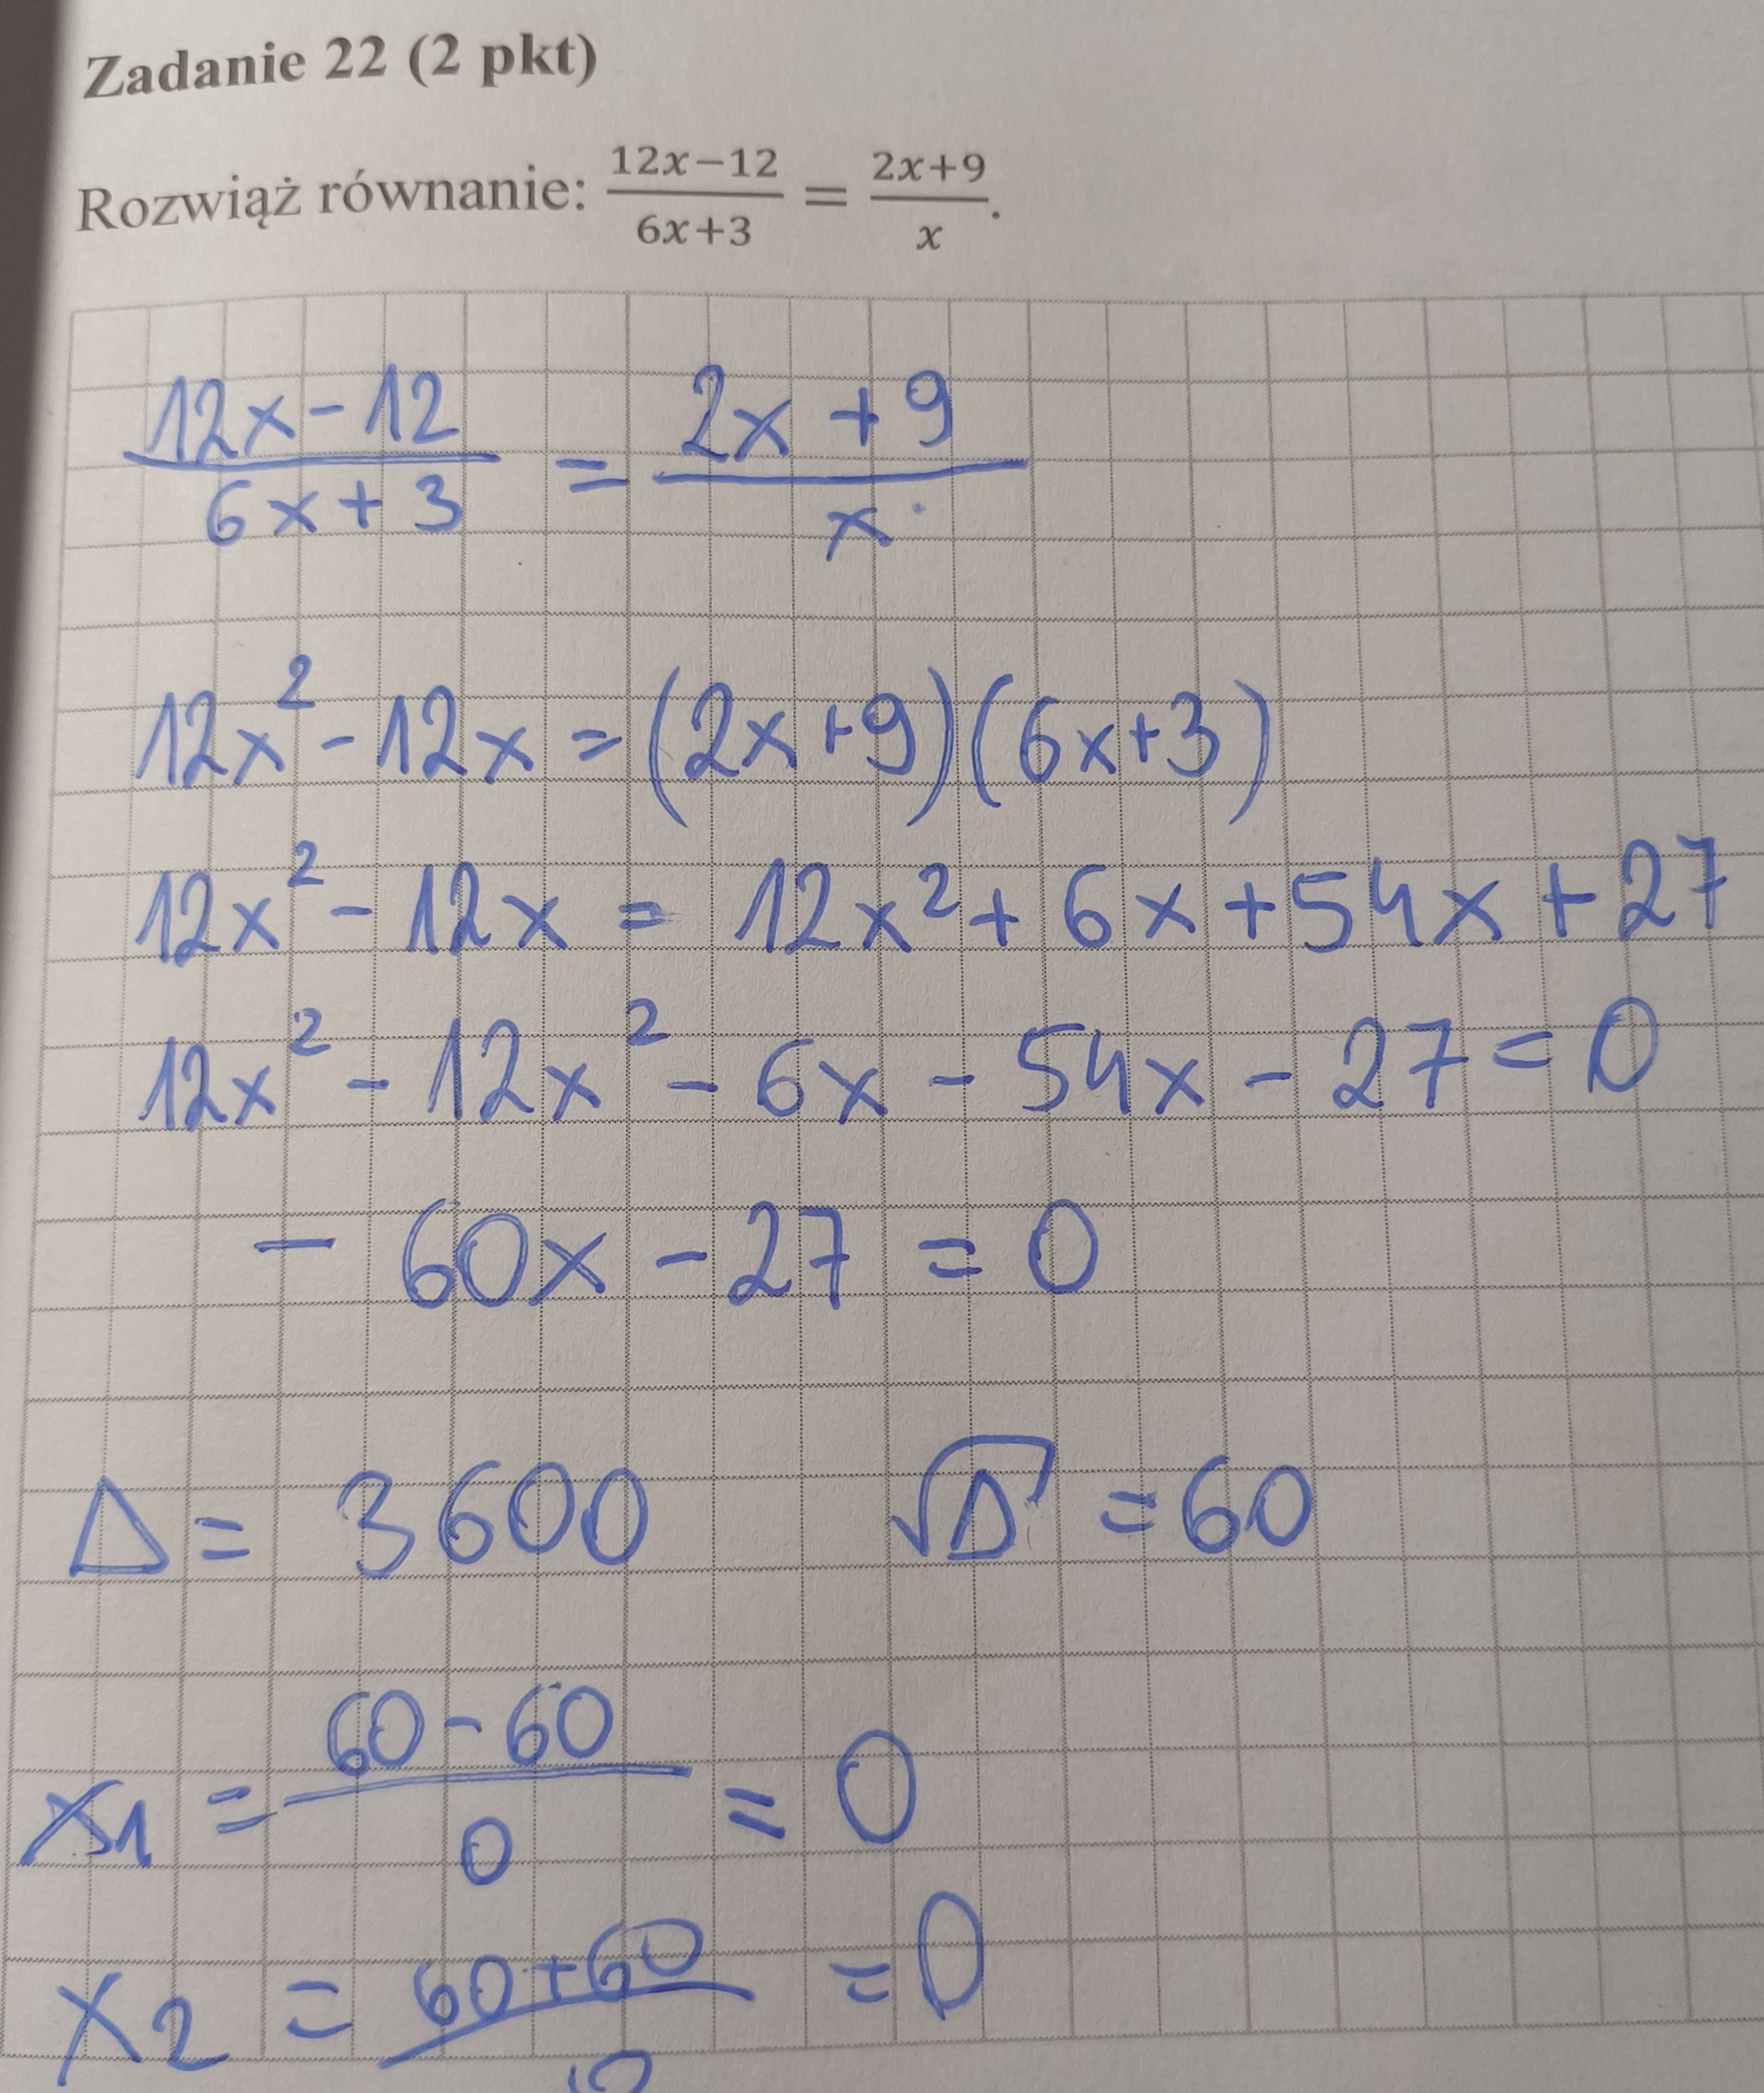 Zadanie 22 (2 pkt)
Rozwiąż równanie: \frac{12x-12}{6x+3} = \frac{2x+9}{x}.
\frac{12x-12}{6x+3} = \frac{2x+9}{x}
12x² - 12x = (2x+9)(6x+3)
12x² - 12x = 12x² + 6x + 54x + 27
12x² - 12x² - 6x - 54x - 27 = 0
- 60x - 27 = 0
Δ = 3600 √Δ = 60
x₁ = \frac{60-60}{0} = 0
x₂ = \frac{60+60}{0} = 0